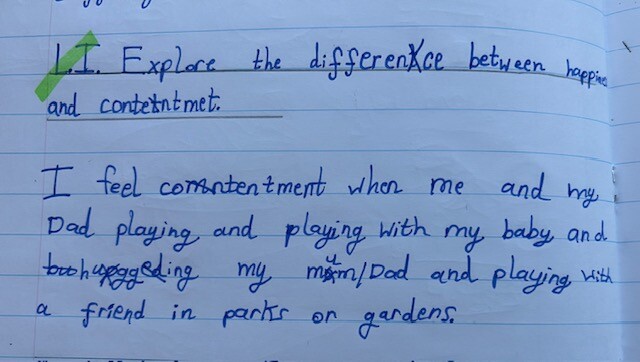 L.I. Explore the difference between happines
and contetntmet.
I feel contentment when me and my
Dad playing and playing with my baby and
huggeding my mum/Dad and playing with
a friend in parks or gardens.